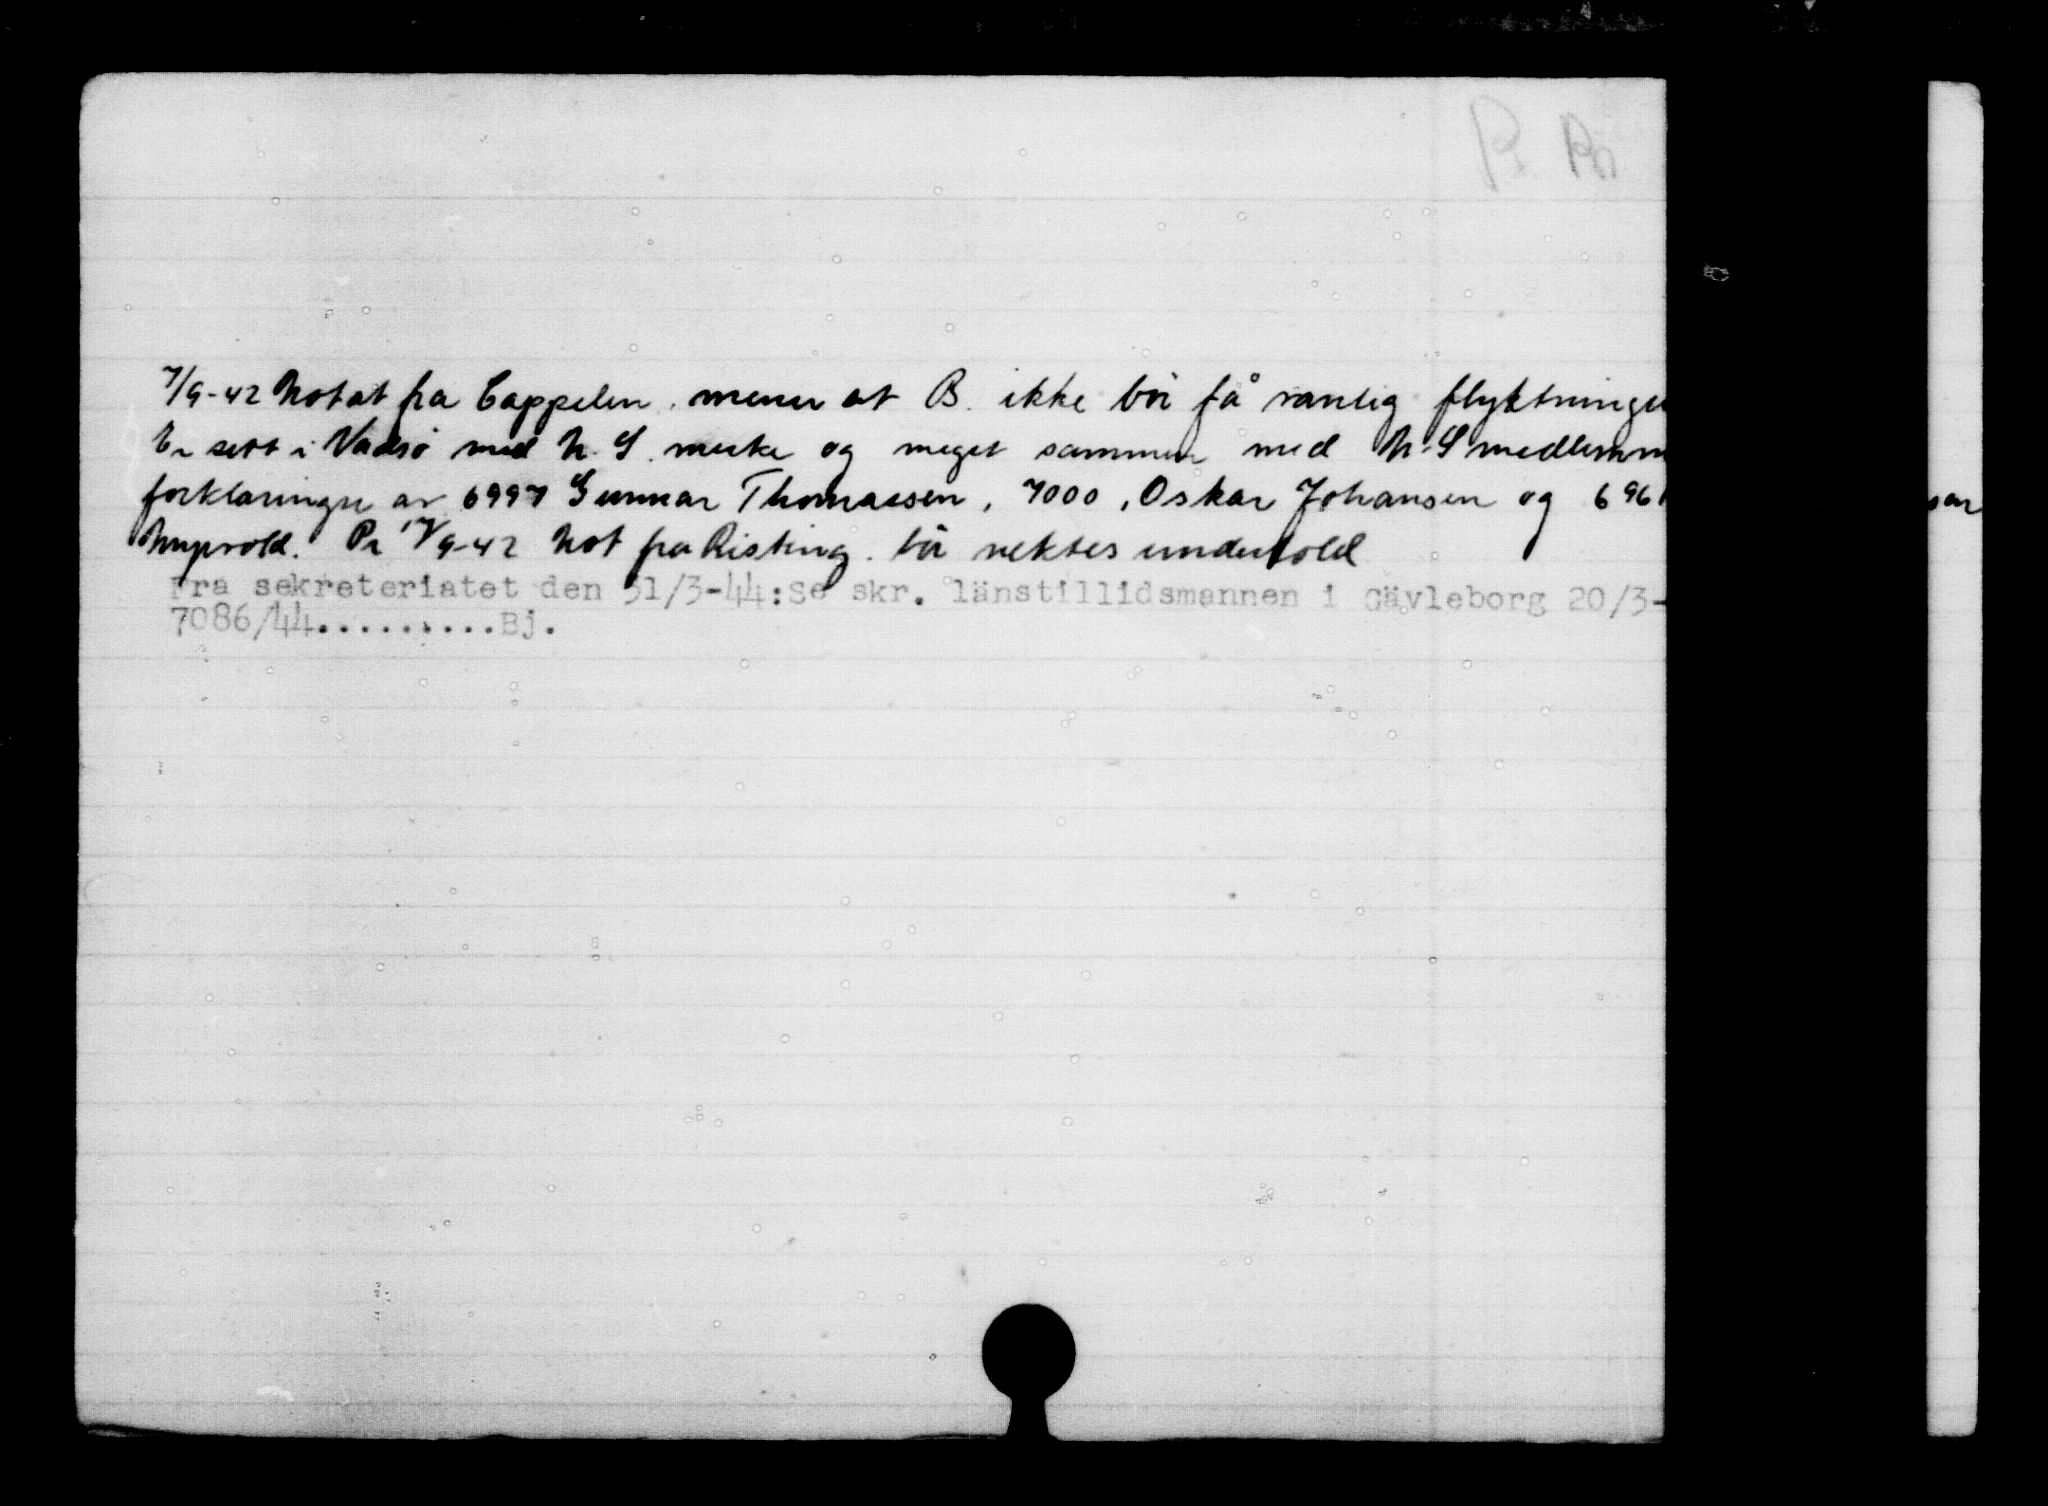 P. Pn
7/9-42 Notat fra Cappelen. mener at B. ikke bör få vanlig flyktninge
Er sett i Vadsö med N.S. merke og meget sammen med N.S medlemm
forklaringer av 6997 Gunnar Thomassen, 7000, Oskar Johansen og 696
Myrvold. Pr 17/9-42 Not fra Risting. bör nektes underhold
Fra sekreteriatet den 31/3-44:Se skr. länstillidsmannen i Gävleborg 20/3-
7086/44.........Bj.